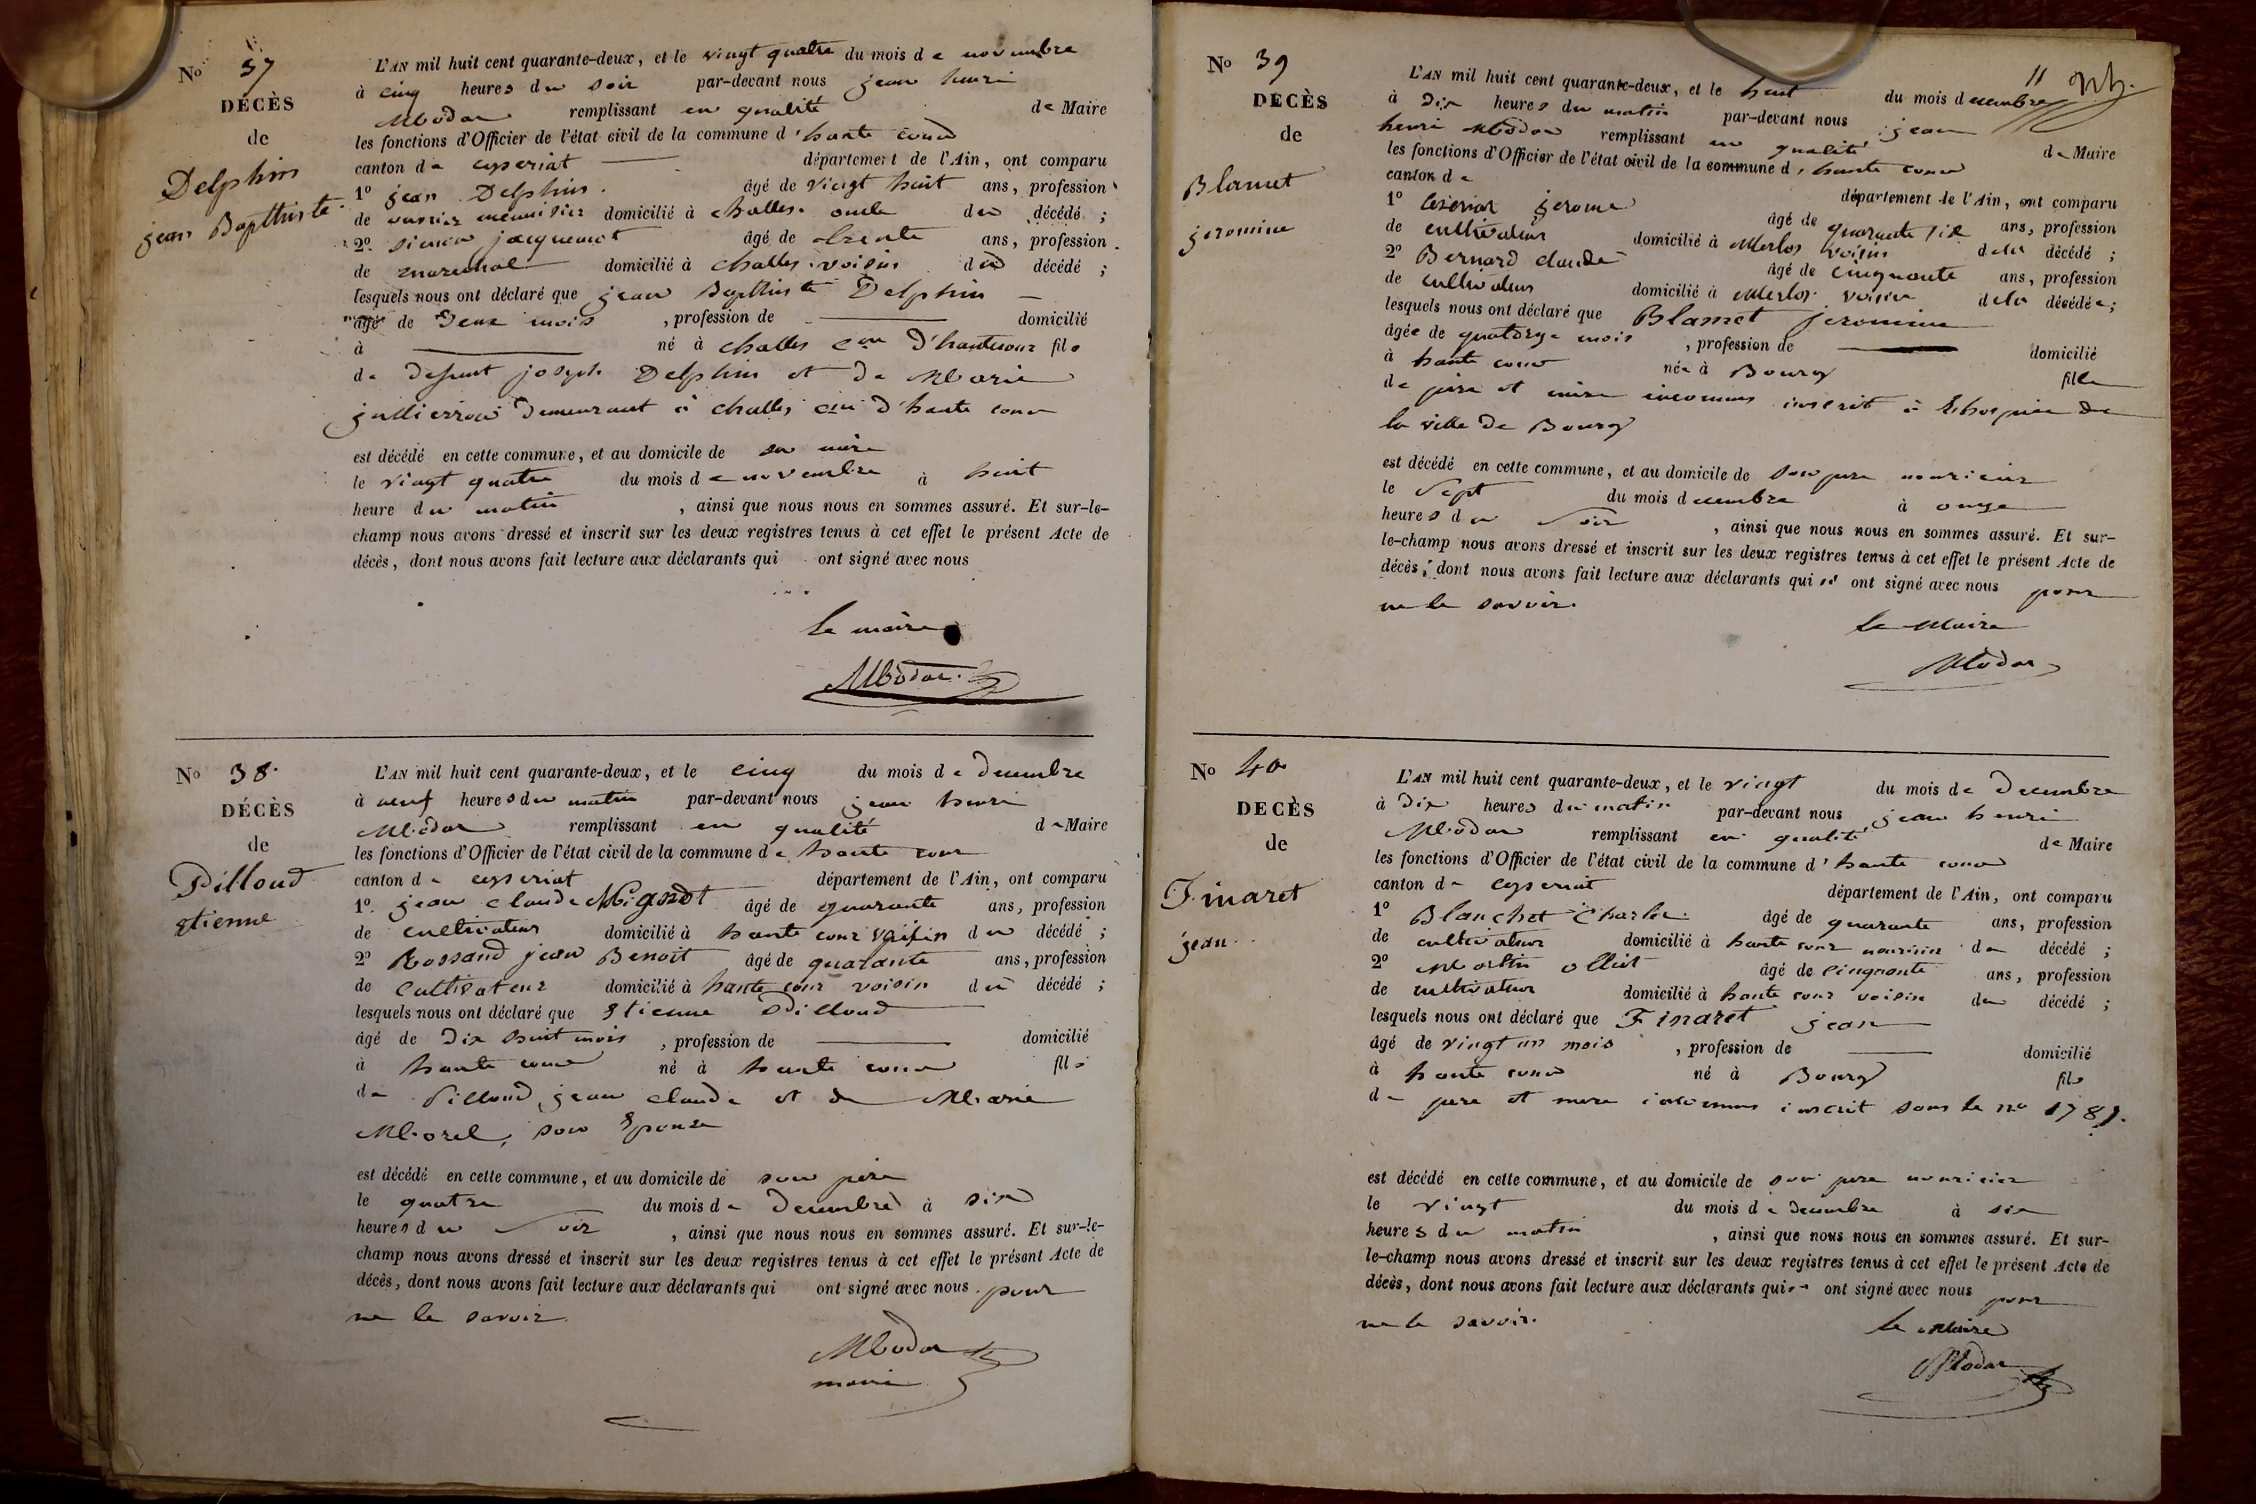 No 37
DÉCÈS
de
Delphin
jean Bapthiste
L'AN mil huit cent quarante-deux, et le vingt quatre du mois de novembre
à cinq heures du soir par-devant nous jean henri
Modas remplissant en qualité de Maire
les fonctions d'Officier de l'état civil de la commune d'haute cour
canton de ceyseriat département de l'Ain, ont comparu
1º jean Delphin. âgé de vingt huit ans, profession
de ouvrier menuisier domicilié à challes. oncle du décédé ;
2º Simon jacquemot âgé de trente ans, profession
de marechal domicilié à challes. voisin du décédé ;
lesquels nous ont déclaré que jean Bapthiste Delphin
âgé de Deux mois , profession de domicilié
à né à challes con d'hautecour fils
de defunt joseph Delphin et de Marie
jullierron Demeurant à challes con d'haute cour
est décédé en cette commune, et au domicile de sa mère
le vingt quatre du mois de novembre à huit
heure du matin , ainsi que nous nous en sommes assuré. Et sur-le-
champ nous avons dressé et inscrit sur les deux registres tenus à cet effet le présent Acte de
décès, dont nous avons fait lecture aux déclarants qui ont signé avec nous
le maire
Modas
No 38
DÉCÈS
de
Pilloud
etienne
L'AN mil huit cent quarante-deux, et le cinq du mois de Decembre
à neuf heures du matin par-devant nous jean henri
Modas remplissant en qualité de Maire
les fonctions d'Officier de l'état civil de la commune de haute cour
canton de ceyseriat département de l'Ain, ont comparu
1º. jean claude Mignot âgé de quarante ans, profession
de cultivateur domicilié à haute cour voisin du décédé ;
2º Rossand jean Benoit âgé de quarante ans, profession
de Cultivateur domicilié à haute cour voisin du décédé ;
lesquels nous ont déclaré que Etienne Pilloud
âgé de Dix huit mois , profession de domicilié
à haute cour né à haute cour fils
de Pilloud jean claude et de Marie
Morel, son Epouse
est décédé en cette commune, et au domicile de son père
le quatre du mois de Decembre à six
heures du soir , ainsi que nous nous en sommes assuré. Et sur-le-
champ nous avons dressé et inscrit sur les deux registres tenus à cet effet le présent Acte de
décès, dont nous avons fait lecture aux déclarants qui ont signé avec nous pour
ne le savoir.
Modas
maire
11
No 39
DECÈS
de
Blamet
jeromine
L'AN mil huit cent quarante-deux, et le huit du mois decembre
à Dix heures du matin par-devant nous jean
henri Modas remplissant en qualité de Maire
les fonctions d'Officier de l'état civil de la commune d'haute cour
canton de département de l'Ain, ont comparu
1º jerome âgé de quarante six ans, profession
de cultivateur domicilié à Merlos voisin dela décédé ;
2º Bernard claude âgé de cinquante ans, profession
de cultivateur domicilié à Merlos voisin dela décédée ;
lesquels nous ont déclaré que Blamet jeromine
âgée de quatorze mois , profession de domicilié
à haute cour née à Bourg fille
de père et mère inconnus inscrit à l'hospice de
la ville de Bourg
est décédé en cette commune, et au domicile de son père nouricier
le Sept du mois decembre à onze
heures du Soir , ainsi que nous nous en sommes assuré. Et sur-
le-champ nous avons dressé et inscrit sur les deux registres tenus à cet effet le présent Acte de
décès, dont nous avons fait lecture aux déclarants qui ont signé avec nous pour
ne le savoir.
le Maire
Modas
No 40
DECÈS
de
Finaret
jean
L'AN mil huit cent quarante-deux, et le vingt du mois de Decembre
à Dix heures du matin par-devant nous jean henri
Modas remplissant en qualité de Maire
les fonctions d'Officier de l'état civil de la commune d'haute cour
canton de ceyseriat département de l'Ain, ont comparu
1º Blanchet Charles âgé de quarante ans, profession
de cultivateur domicilié à haute cour nouricier du décédé ;
2º Martin olliet âgé de cinquante ans, profession
de cultivateur domicilié à haute cour voisin du décédé ;
lesquels nous ont déclaré que Finaret jean
âgé de vingt un mois , profession de domicilié
à haute cour né à Bourg fils
de père et mere inconnus inscrit sous le no
est décédé en cette commune, et au domicile de son père nouricier
le vingt du mois de decembre à six
heures du matin , ainsi que nous nous en sommes assuré. Et sur-
le-champ nous avons dressé et inscrit sur les deux registres tenus à cet effet le présent Acte de
décès, dont nous avons fait lecture aux déclarants qui ont signé avec nous pour
ne le savoir.
le Maire
Modas